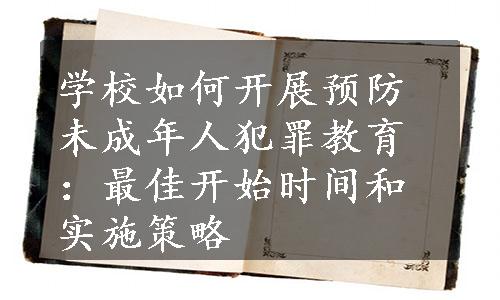 学校如何开展预防
未成年人犯罪教育
：最佳开始时间和
实施策略